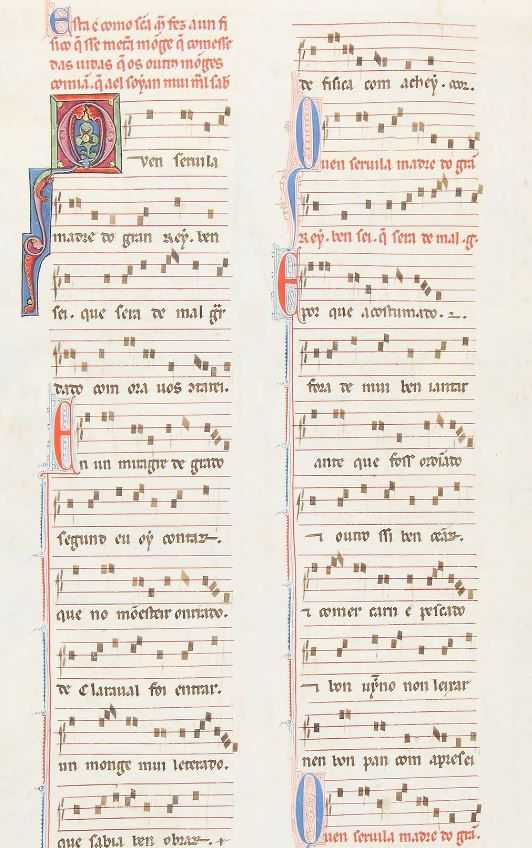 Esta é como séa aq̃ fez a un fi
sico q̃ sse metá mõge q̃ comesse
das vidas q̃ os outͬs mõges
comiã. q̃ a el soyan mui mͣl sab
Quen servila
madre do gran Rey. ben
sei. que sera de mal gͬ
dado com ora vos
En un miragre de grado
segund eu oý contar.
que no mõesteir onrrado.
de Claraval foi entrar.
un monge mui leterado.
que sabia ben obrar. ⁊
de fisica com achey. cor.
Quen servila madre do grã
Rey. ben sei. q̃ sera de mal. g.
E por que acostumado. ⁊.
fora de mui ben iantar
ante que foss ordĩado
⁊ outro ssi ben cẽar.
⁊ comer carn e pescado
⁊ bon vỹno non leixar
nen bon pan com apresei
Quen servila madre do grã.